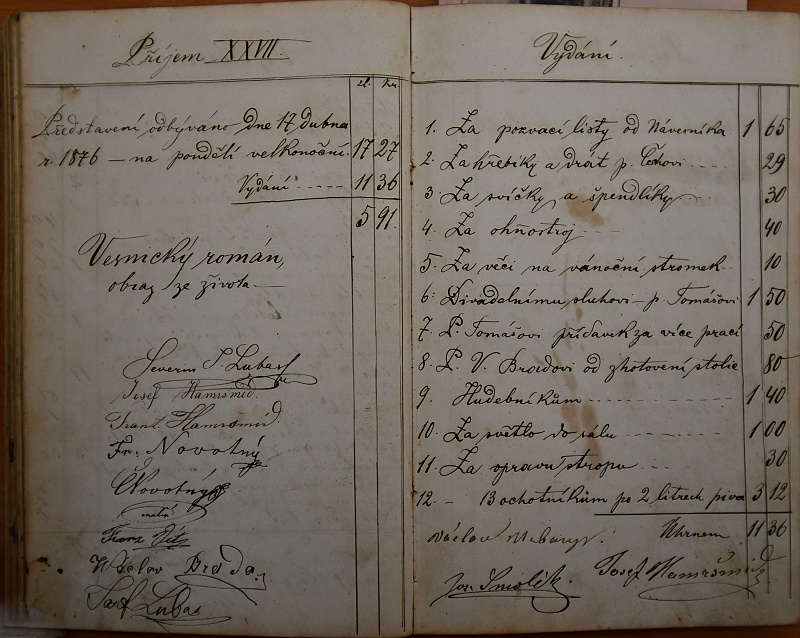 Příjem XXVII.
zl. kr.
Představení odbýváno dne 17 dubna
r. 1876 – na pondělí velkonoční. 17 27
Vydání ----- 11 36
5 91.
Vesnický román,
obraz ze života
Severin J. Lubas
Josef Hamršmíd.
Franz Hamršmíd.
Fr. Novotný
Novotný
Franz
Václav Broda.
Lubas
Vydání.
1. Za pozvací listy od Náverníka 1 65
2. Za hřebíky a drát p. Čechovi 29
3. Za svíčky a špendlíky 30
4. Za ohňostroj 40
5. Za věci na vánoční stromek 10
6. Divadelnímu sluhovi – p. Tomášovi 1 50
7. P. Tomášovi přídavek za více prací 50
8. P. V. Brodovi od zhotovení stolic 80
9. Hudebníkům 1 40
10. Za světlo do sálu 1 00
11. Za opravu stropu 30
12. – 13 ochotníkům po 2 litrech piva 3 12
Úhrnem 11 36
Václav
Jos. Smolík. Josef Hamršmíd